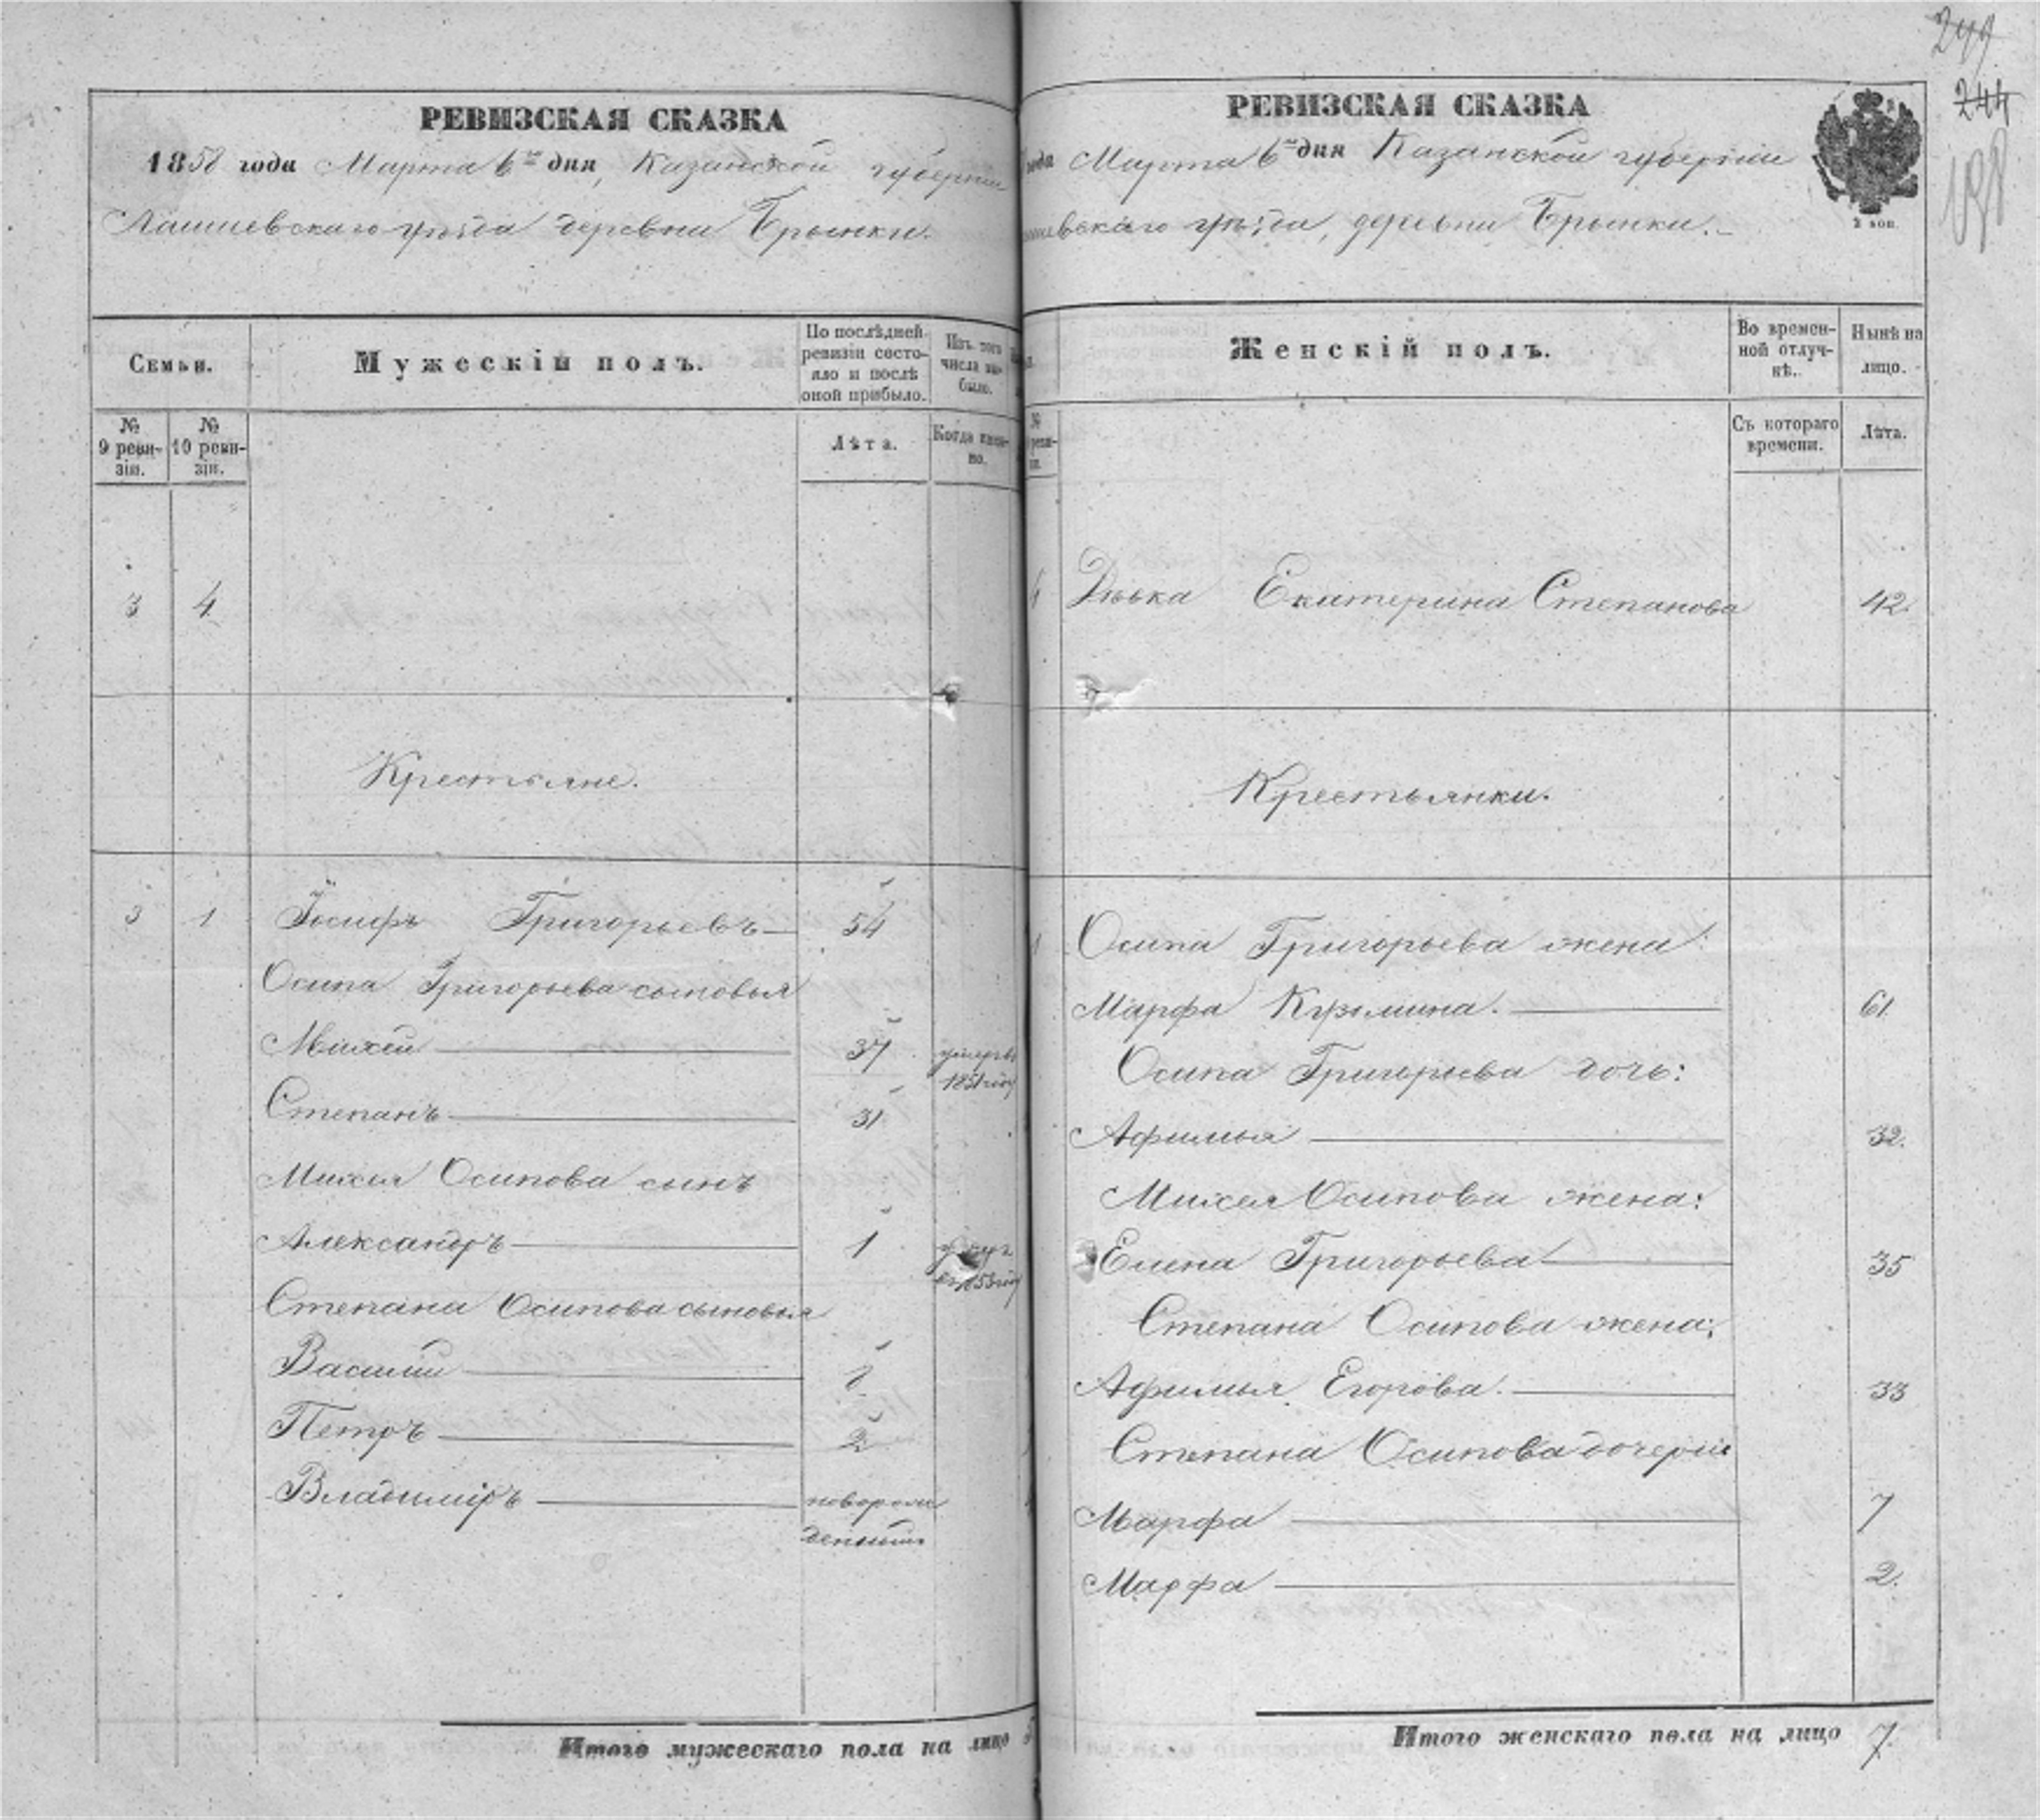 РЕВИЗСКАЯ СКАЗКА
1858 года Марта 6го дня, Казанской губерніи
Лаишевскаго уѣзда деревни Брынки.
Семьи.
Мужескій полъ.
По послѣдней ревизіи состояло и послѣ оной прибыло.
Изъ того числа выбыло.
№ 9 ревизіи.
№ 10 ревизіи.
Лѣта.
Когда именно.
3 4
Крестьяне.
3 1 Іосифъ Григорьевъ 54
Осипа Григорьева сыновья
Михей 37 умеръ
1851 году
Степанъ 31
Михея Осипова сынъ
Александръ 1 умеръ
въ 1853 году
Степана Осипова сыновья
Василій 8
Петръ 2
Владиміръ новорож
денный
Итого мужескаго пола на лицо
249
244
198
РЕВИЗСКАЯ СКАЗКА
года Марта 6го дня Казанской губерніи
шевскаго уѣзда, деревни Брынки.
2 коп.
Женскій полъ.
Во временной отлучкѣ.
Нынѣ на лицо.
Съ котораго времени.
Лѣта.
4 Дѣвка Екатерина Степанова 42.
Крестьянки.
1 Осипа Григорьева жена:
Марфа Кузмина. 61
Осипа Григорьева дочь:
Афимья 32.
Михея Осипова жена:
Елена Григорьева 35
Степана Осипова жена:
Афимья Егорова. 33
Степана Осипова дочери
Марфа 7
Марфа 2.
Итого женскаго пола на лицо 7.